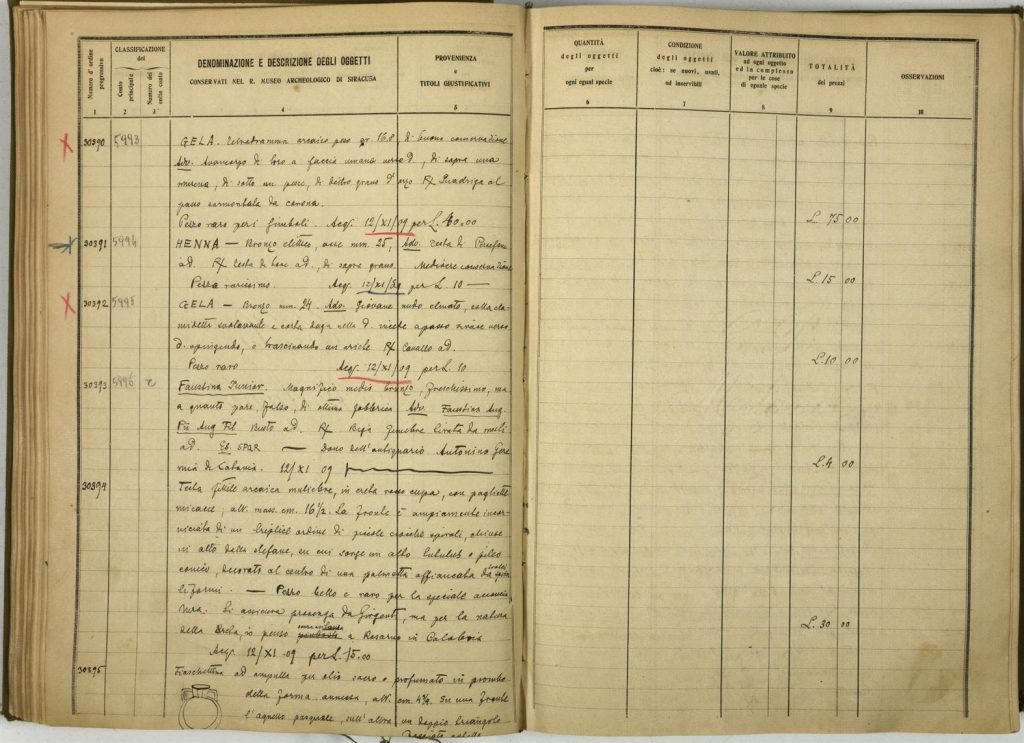 Numero d'ordine progressivo
CLASSIFICAZIONE
del
Conto principale
Numero del sotto conto
DENOMINAZIONE E DESCRIZIONE DEGLI OGGETTI
CONSERVATI NEL R. MUSEO ARCHEOLOGICO DI SIRACUSA
PROVENIENZA
e
TITOLI GIUSTIFICATIVI
1 2 3 4 5
30390 5993 GELA. Tetradramma arcaico peso gr. 16.8, di buona conservazione
Adv. Avancorpo di toro a faccia umana verso d., di sopra una
murena, di sotto un pesce, di dietro grano d'orzo Rx Quadriga al
passo sormontata da corona.
Pezzo raro pei simboli. Acq. 12/XI/09 per L. 40.00
30391 5994 HENNA — Bronzo ellittico, asse mm. 25, Adv. Testa di Persefone
ad. Rx testa di bove ad., di sopra grano. Mediocre conservazione
Pezzo rarissimo. Acq. 12/XI/39 per L. 10 —
30392 5995 GELA — Bronzo mm. 24. Adv. Giovane nudo elmato, colla cla-
midetta svolazzante e corta daga nella d. incede a passo verso
d. spingendo, o trascinando un ariete Rx Cavallo ad.
Pezzo raro Acq. 12/XI/09 per L. 10
30393 5996 Faustina Junior. Magnifico medio bronzo, freschissimo, ma
a quanto pare, falso, di ottima fabbrica Adv. Faustina Aug.
Pii Aug Fil Busto ad. Rx Biga funebre tirata da muli
ad. Es. SPQR — Dono dell'antiquario Antonino Gere-
mia di Catania. 12/XI 09
30394 Testa fittile arcaica muliebre, in creta rosso cupa, con pagliette
micacee, alt. mass. cm. 16½. La fronte è ampiamente incor-
niciata di un triplice ordine di piccole ciocche spirali, chiuse
in alto dalla stefane, su cui sorge un alto tutulus o pileo
conico, decorato al centro di una palmetta affiancata da
liformi. — Pezzo bello e raro per la speciale acconcia
tura. Si assicura provenga da Girgenti, ma per la natura
della creta, io penso a Rosarno in Calabria
Acq. 12/XI-09 per L. 15.00
30395 Fiaschettina ad ampulla per olio sacro o profumato in piombo
della forma annessa, alt. cm. 4¾. Su una fronte
l'agnello pasquale, sull'altra un doppio triangolo
QUANTITÀ
degli oggetti
per
ogni egual specie
CONDIZIONE
degli oggetti
cioè: se nuovi, usati,
od inservibili
VALORE ATTRIBUITO
ad ogni oggetto
ed in complesso
per le cose
di eguale specie
TOTALITÀ
dei prezzi
OSSERVAZIONI
6 7 8 9 10
L. 75 00
L. 15 00
L. 10 00
L. 4 00
L. 30 00